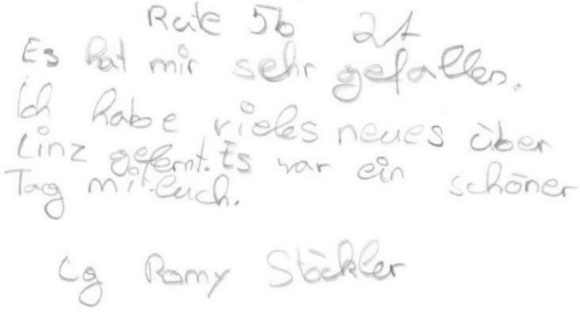 Rate 5b 21
Es hat mir sehr gefallen.
Ich habe vieles neues über
Linz gelernt. Es war ein schöner
Tag mit euch.
Lg Ramy Stöckler